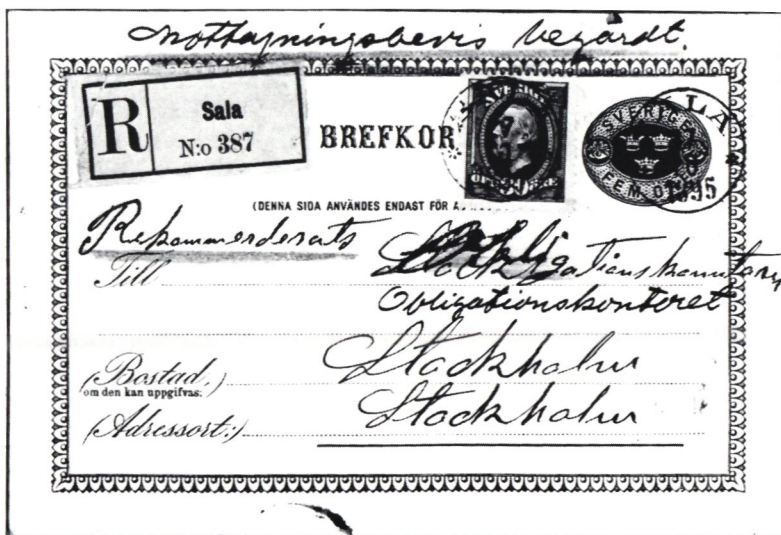 Mottagningsbevis begärdt.
R Sala
N:o 387
BREFKOR
SVERIGE
FEM ÖRE
LA
1895
(DENNA SIDA ANVÄNDES ENDAST FÖR A
Rekommenderats
Till
Obligationskontoret
(Bostad.) Stockholm
om den kan uppgifvas:
(Adressort:) Stockholm